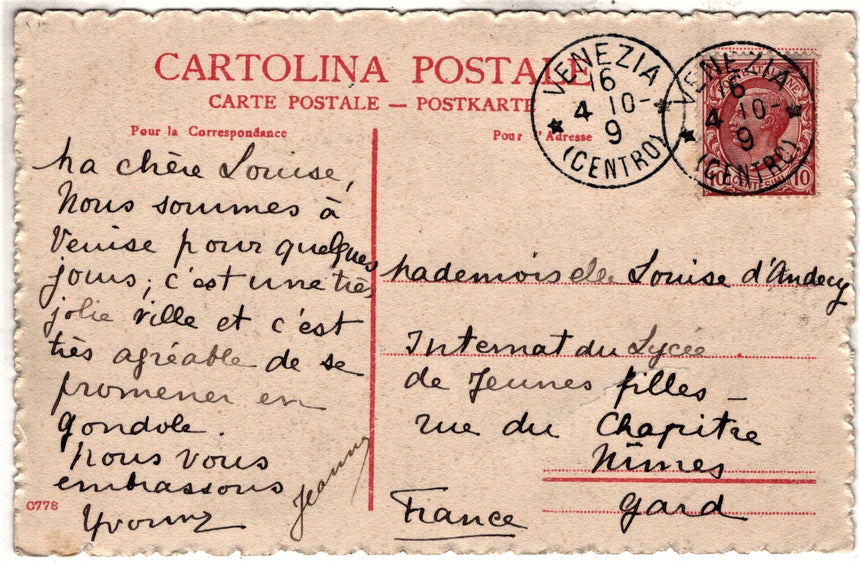 CARTOLINA POSTALE
CARTE POSTALE — POSTKARTE
Pour la Correspondance
Pour l'Adresse
VENEZIA
16
4 10-
9
(CENTRO)
VENEZIA
16
4 10-
9
(CENTRO)
10 CENTESIMI 10
Ma chère Louise,
Nous sommes à
Venise pour quelques
jours; c'est une très
jolie ville et c'est
très agréable de se
promener en
gondole.
Nous vous
embrassons
Yvonne
Jeanny
Mademoiselle Louise d'Andecy
Internat du Lycée
de Jeunes filles –
rue du Chapitre
Nîmes
Gard
France
0778